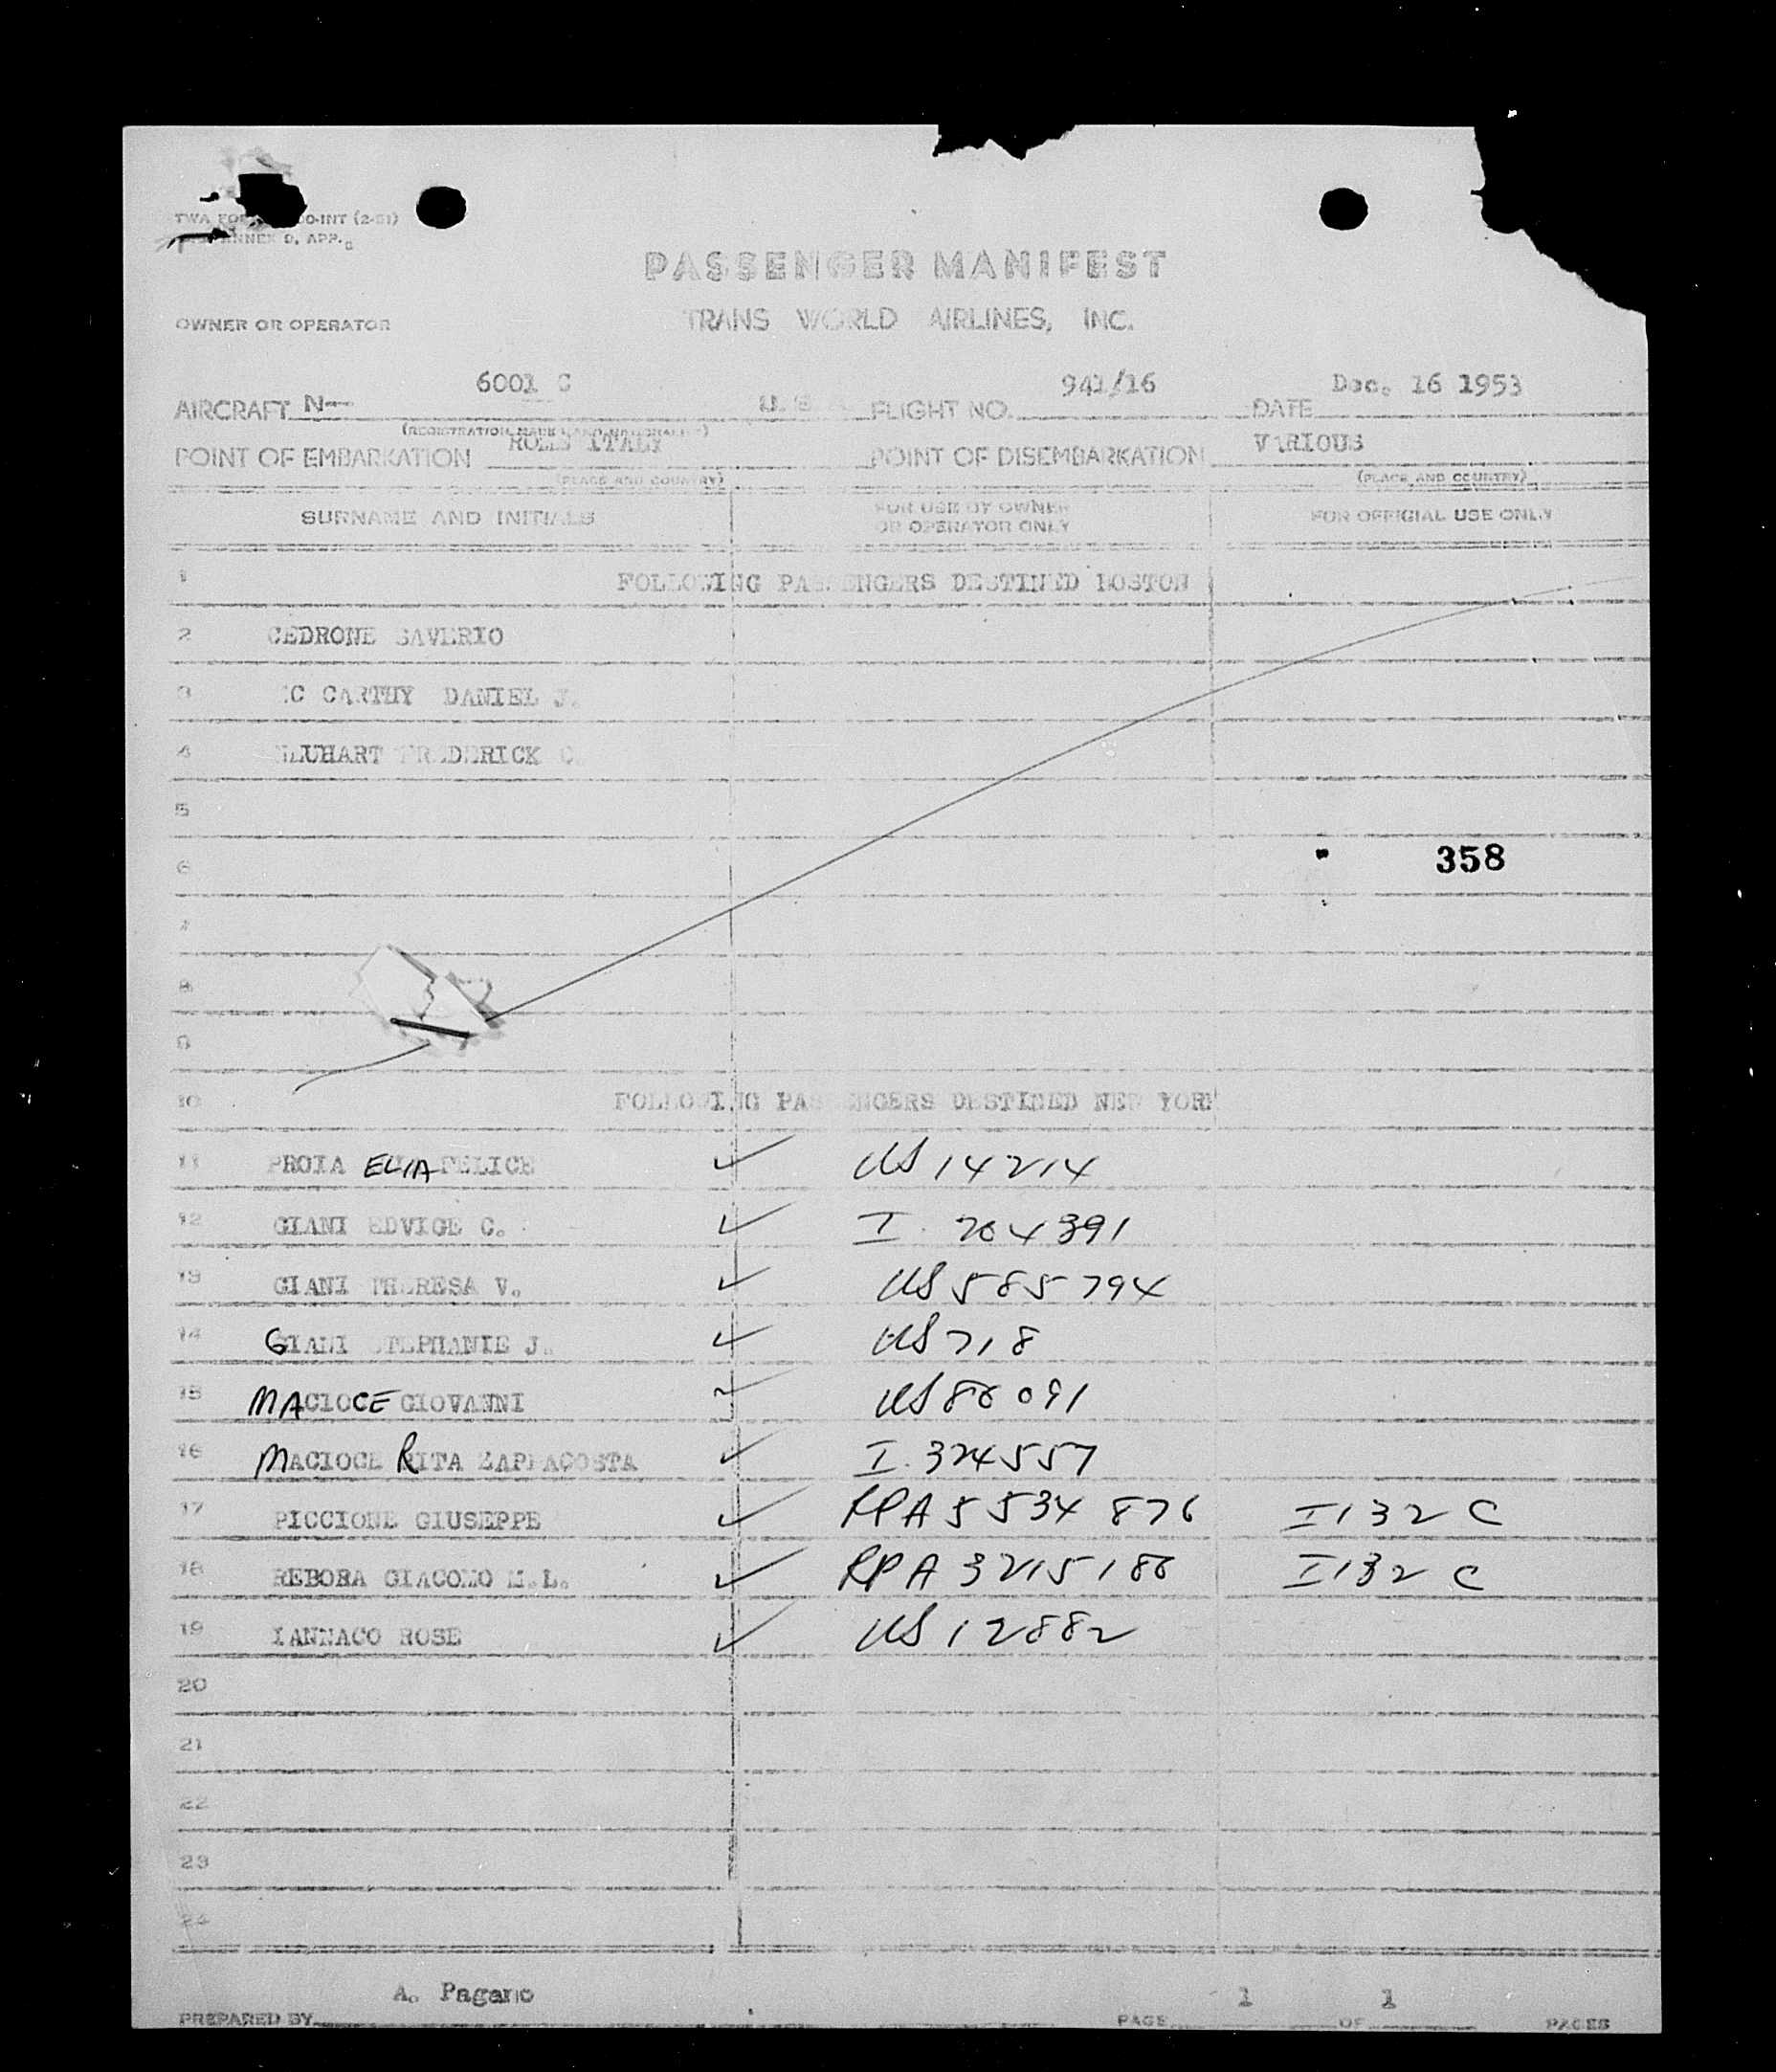 TWA FO 00-INT (2-51)
ANNEX 9, APP.
PASSENGER MANIFEST
OWNER OR OPERATOR TRANS WORLD AIRLINES, INC.
6001 C 941/16 Dec. 16 1953
AIRCRAFT N- U.S. FLIGHT NO. DATE
ITALY VARIOUS
POINT OF EMBARKATION POINT OF DISEMBARKATION
(PLACE AND COUNTRY) (PLACE AND COUNTRY)
SURNAME AND INITIALS FOR USE BY OWNER OR OPERATOR ONLY FOR OFFICIAL USE ONLY
1 FOLLOWING PASSENGERS DESTINED BOSTON
2 CEDRONE SAVERIO
3 MC CARTHY DANIEL J.
4 FREDERICK C.
5
6 358
7
8
9
10 FOLLOWING PASSENGERS DESTINED NEW YORK
11 PROIA ELIA FELICE ✓ US 14214
12 GIANI EDVIGE C. ✓ I. 704391
13 GIANI THERESA V. ✓ US 585794
14 GIANI STEPHANIE J. ✓ US 718
15 MACIOCE GIOVANNI ✓ US 86091
16 MACIOCE RITA ✓ I. 324557
17 PICCIONE GIUSEPPE ✓ RPA 5534876 I132C
18 REBORA GIACOMO M.L. ✓ RPA 3215186 I132C
19 IANNACO ROSE ✓ US 12882
20
21
22
23
24
A. Pagano 1 1
PREPARED BY PAGE OF PAGES